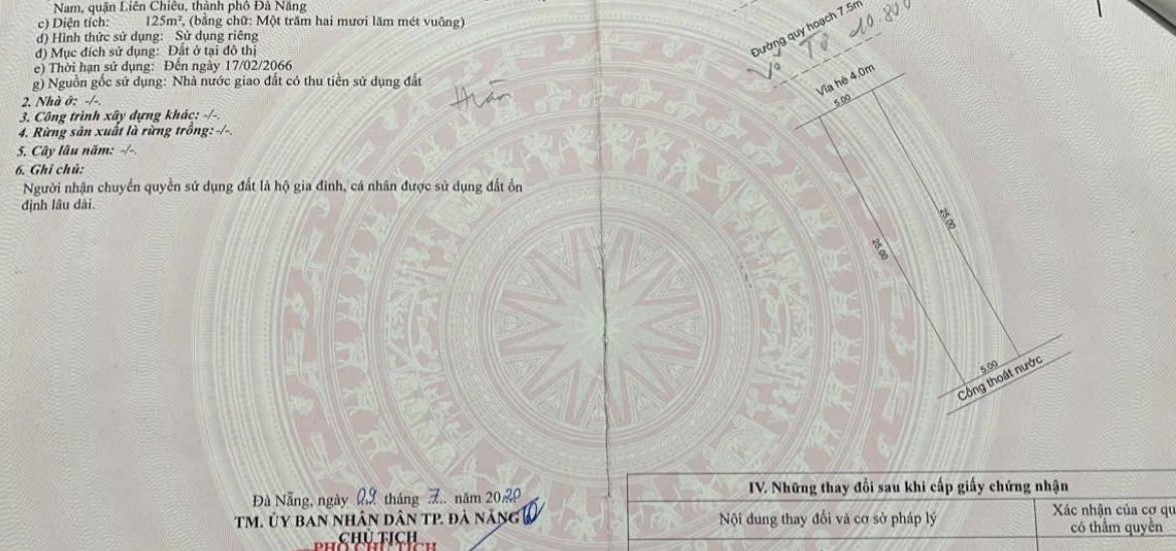 Nam, quận Liên Chiểu, thành phố Đà Nẵng
c) Diện tích: 125m², (bằng chữ: Một trăm hai mươi lăm mét vuông)
d) Hình thức sử dụng: Sử dụng riêng
đ) Mục đích sử dụng: Đất ở tại đô thị
e) Thời hạn sử dụng: Đến ngày 17/02/2066
g) Nguồn gốc sử dụng: Nhà nước giao đất có thu tiền sử dụng đất
2. Nhà ở: -/-.
3. Công trình xây dựng khác: -/-.
4. Rừng sản xuất là rừng trồng: -/-.
5. Cây lâu năm: -/-.
6. Ghi chú:
Người nhận chuyển quyền sử dụng đất là hộ gia đình, cá nhân được sử dụng đất ổn
định lâu dài.
Đường quy hoạch 7.5m
Vỉa hè 4.0m
5.00
25.00
25.00
5.00
Cống thoát nước
Đà Nẵng, ngày 09 tháng 7 năm 2020
TM. ỦY BAN NHÂN DÂN TP. ĐÀ NẴNG
CHỦ TỊCH
PHÓ CHỦ TỊCH
IV. Những thay đổi sau khi cấp giấy chứng nhận
Nội dung thay đổi và cơ sở pháp lý
Xác nhận của cơ qu
có thẩm quyền